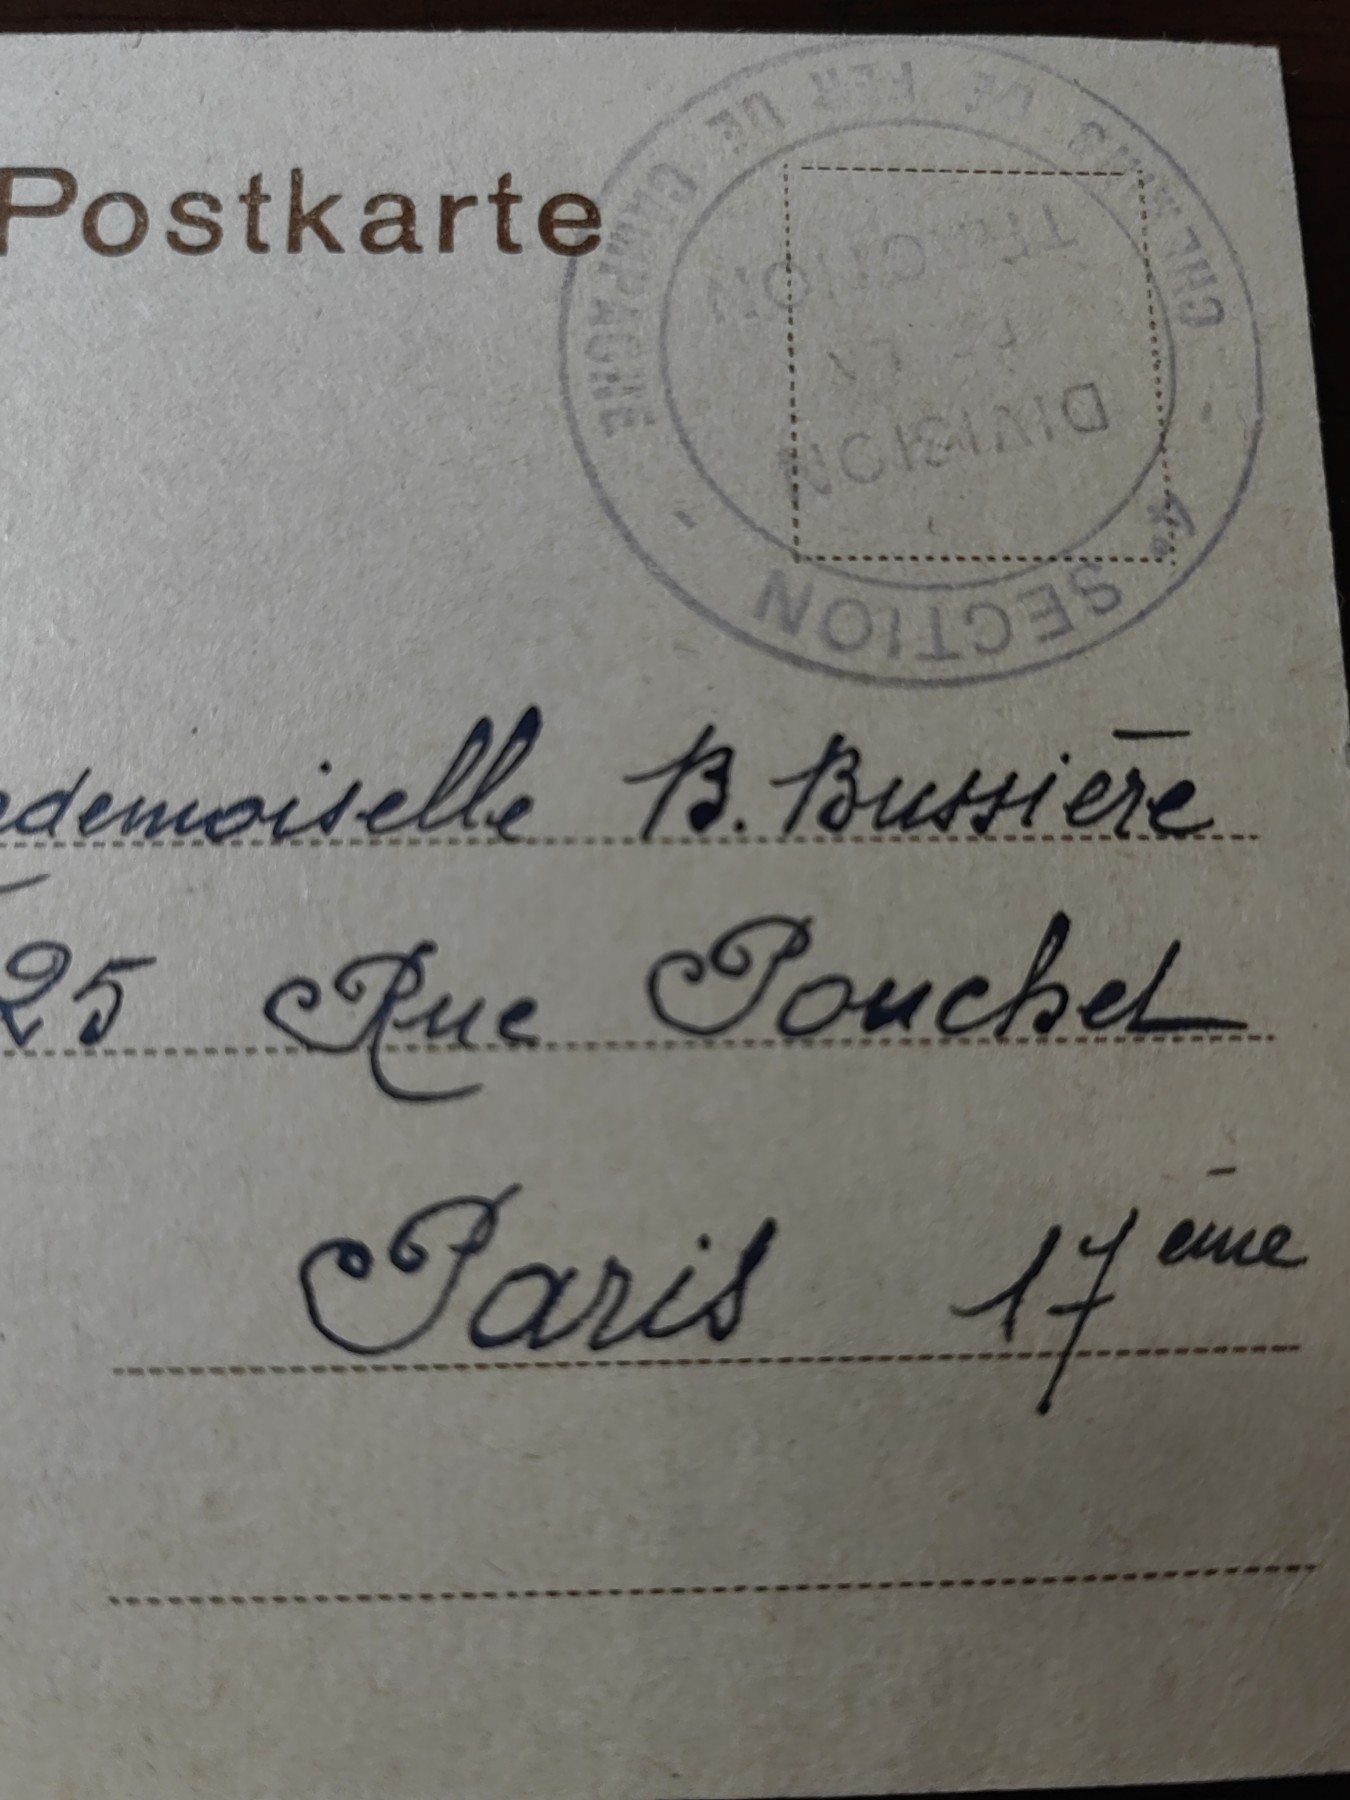 Postkarte
CHEMINS DE FER DE CAMPAGNE
TRACTION
DE LA
DIVISION
SECTION
ademoiselle B. Bussière
25 Rue Pouchet
Paris 17ème